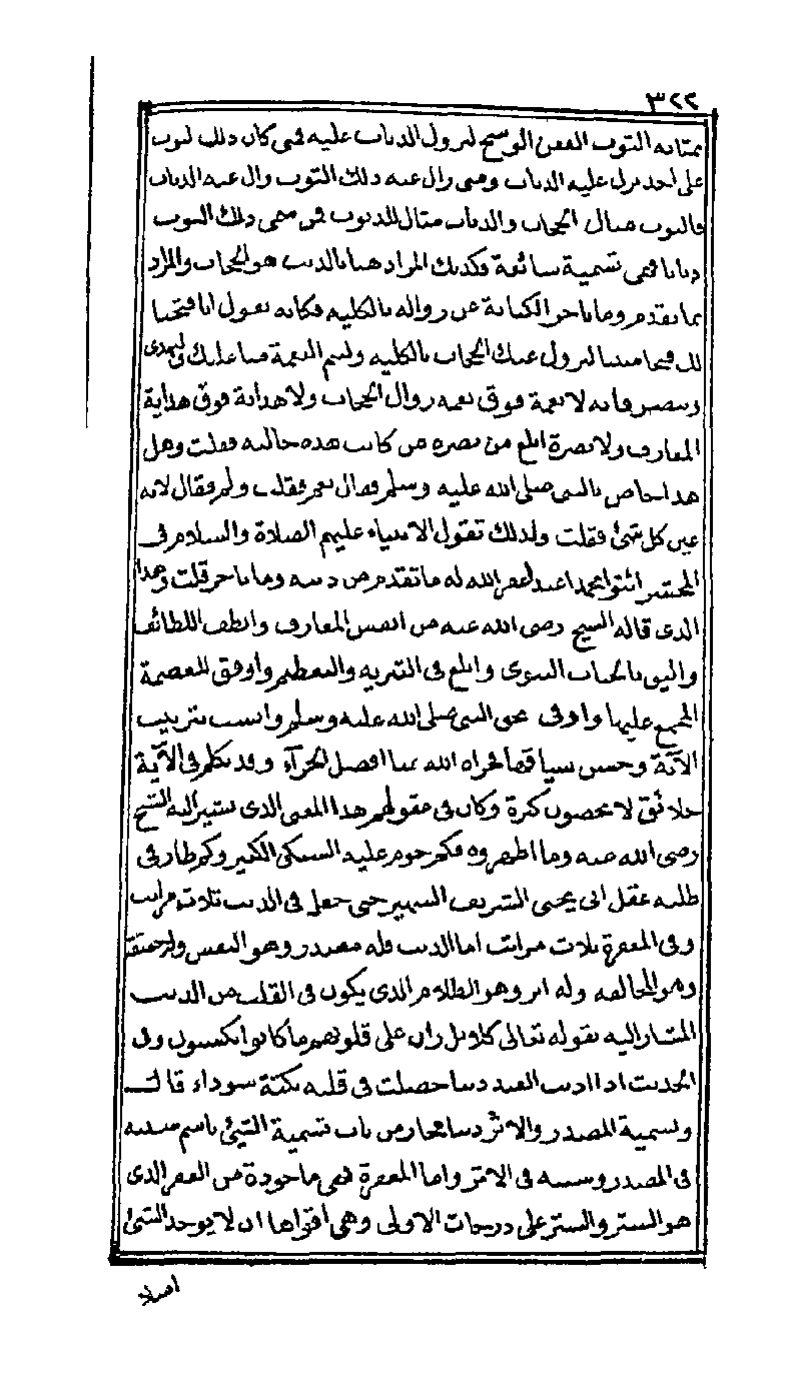 ٣٢٢
بمثابة الثوب العفن الوسخ لنزول الذباب عليه فمتى كان ذلك الثوب
على احد نزل عليه الذباب ومتى زال عنه ذلك الثوب زال عنه الذباب
فالثوب مثال الحجاب والذباب مثال للذنوب فمن سمى ذلك الثوب
ذبابا فهى تسمية سائغة فكذلك المراد هنا بالذنب هو الحجاب والمراد
بما تقدم وما تاخر الكناية عن زواله بالكلية فكانه يقول انا فتحنا
لك فتحا مبينا ليزول عنك الحجاب بالكلية ولتتم النعمة منا عليك ولتهدى
وتنصر فانه لا نعمة فوق نعمة زوال الحجاب ولا هداية فوق هداية
المعارف ولا نصرة ابلغ من نصرة من كانت هذه حالته فقلت وهل
هذا خاص بالنبى صلى الله عليه وسلم فقال نعم فقلت ولم فقال لانه
عين كل شئ فقلت ولذلك تقول الانبياء عليهم الصلاة والسلام فى
المحشر ائتوا محمدا عبدا غفر الله له ما تقدم من ذنبه وما تاخر قلت وهذا
الذى قاله الشيخ رضى الله عنه من انفس المعارف والطف اللطائف
واليق بالجناب النبوى وابلغ فى التنزيه والتعظيم واوفق للعصمة
المجمع عليها واوفى بحق النبى صلى الله عليه وسلم وانسب بترتيب
الآية وحسن سياقها فجزاه الله عنا افضل الجزآء وقد تكلم فى الآية
خلائق لا يحصون كثرة وكان فى عقولهم هذا المعنى الذى يشير اليه الشيخ
رضى الله عنه وما اظهروه فكم حوم عليه السبكى الكبير وكم طار فى
طلبه عقل ابى يحيى الشريف الشهير حتى جعل فى الذنب ثلاث مراتب
وفى المغفرة ثلاث مراتب اما الذنب فله مصدر وهو النفس وله حقيقة
وهو المخالفة وله اثر وهو الظلام الذى يكون فى القلب من الذنب
المشار اليه بقوله تعالى كلا بل ران على قلوبهم ما كانوا يكسبون وفى
الحديث اذا اذنب العبد ذنبا حصلت فى قلبه نكتة سوداء قال
وتسمية المصدر والاثر ذنبا مجاز من باب تسمية الشئ باسم مسببه
فى المصدر وسببه فى الاثر واما المغفرة فهى ماخوذة من الغفر الذى
هو الستر والستر على درجات الاولى وهى اقواها ان لا يوجد الشئ
اصلا